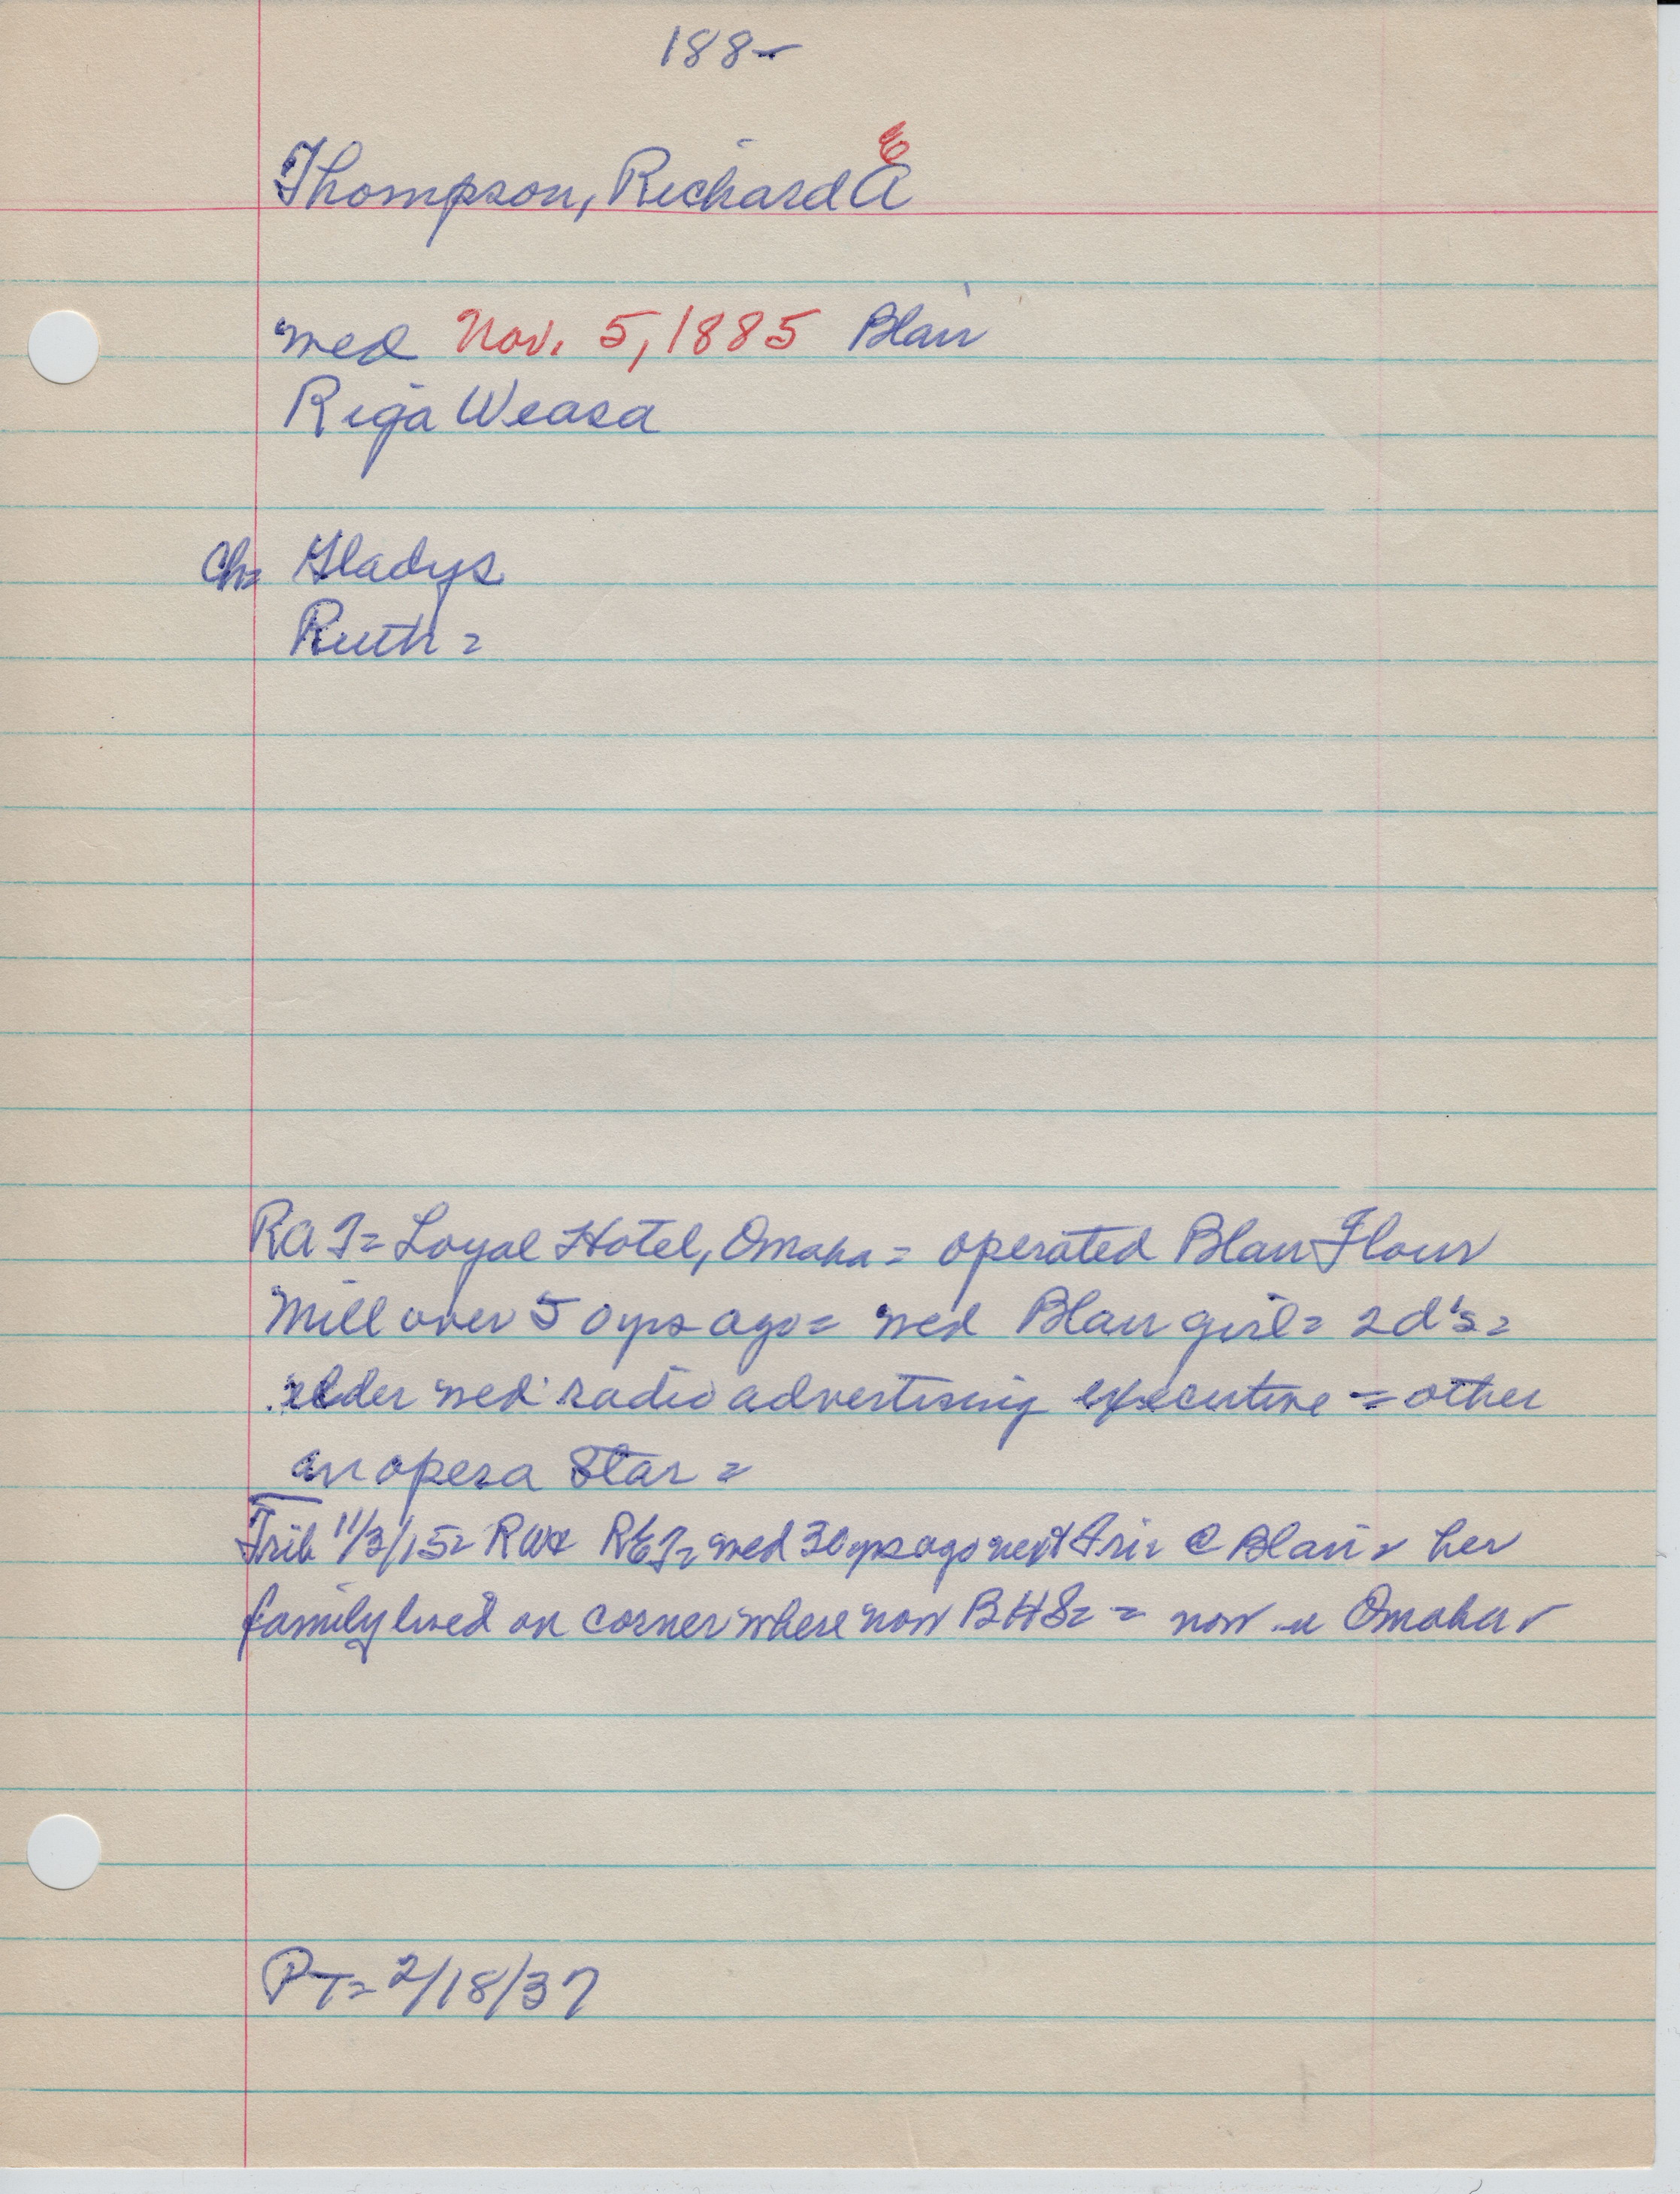 188-
E
Thompson, Richard A
med Nov. 5, 1885 Blair
Riga Weasa
Ch= Gladys
Ruth =
RAT= Loyal Hotel, Omaha = operated Blair Flour
Mill over 50 yrs ago = med Blair girl = 2 d's =
elder med radio advertising executive = other
an opera Star =
Trib 11/3/15= RW& RET= med 30 yrs ago next Fri= @ Blair = her
family lived on corner where now BHS= = now in Omaha =
PT= 2/18/37